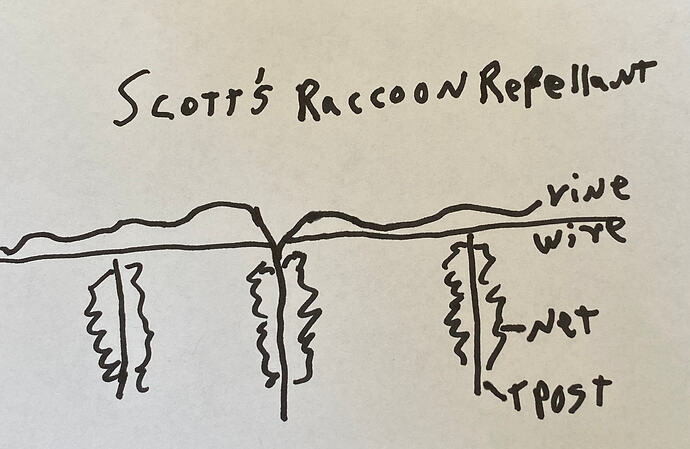 Scott's Raccoon Repellant
vine
wire
Net
T Post